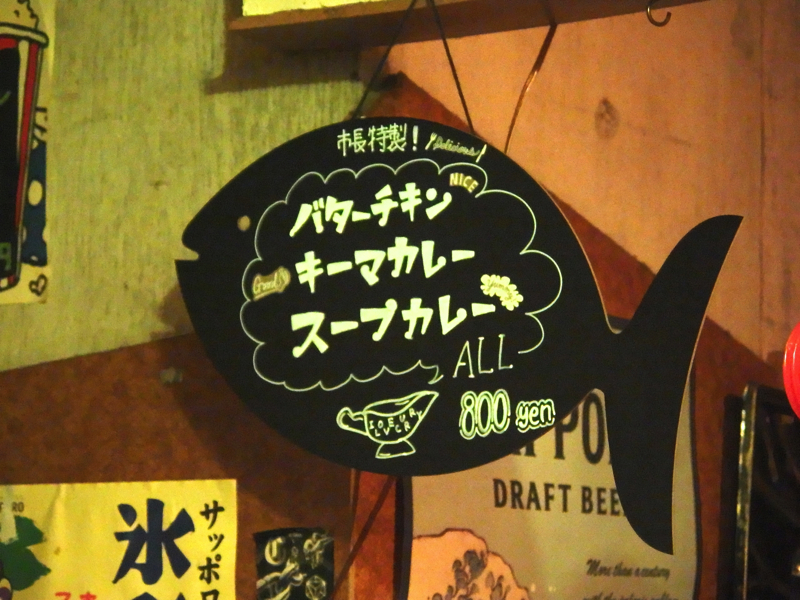 市長特製!
Delicious
NICE
バターチキン
Good
キーマカレー
スープカレー
ALL
800 yen
PPO
DRAFT BEE
More than a century
サッポロ
氷